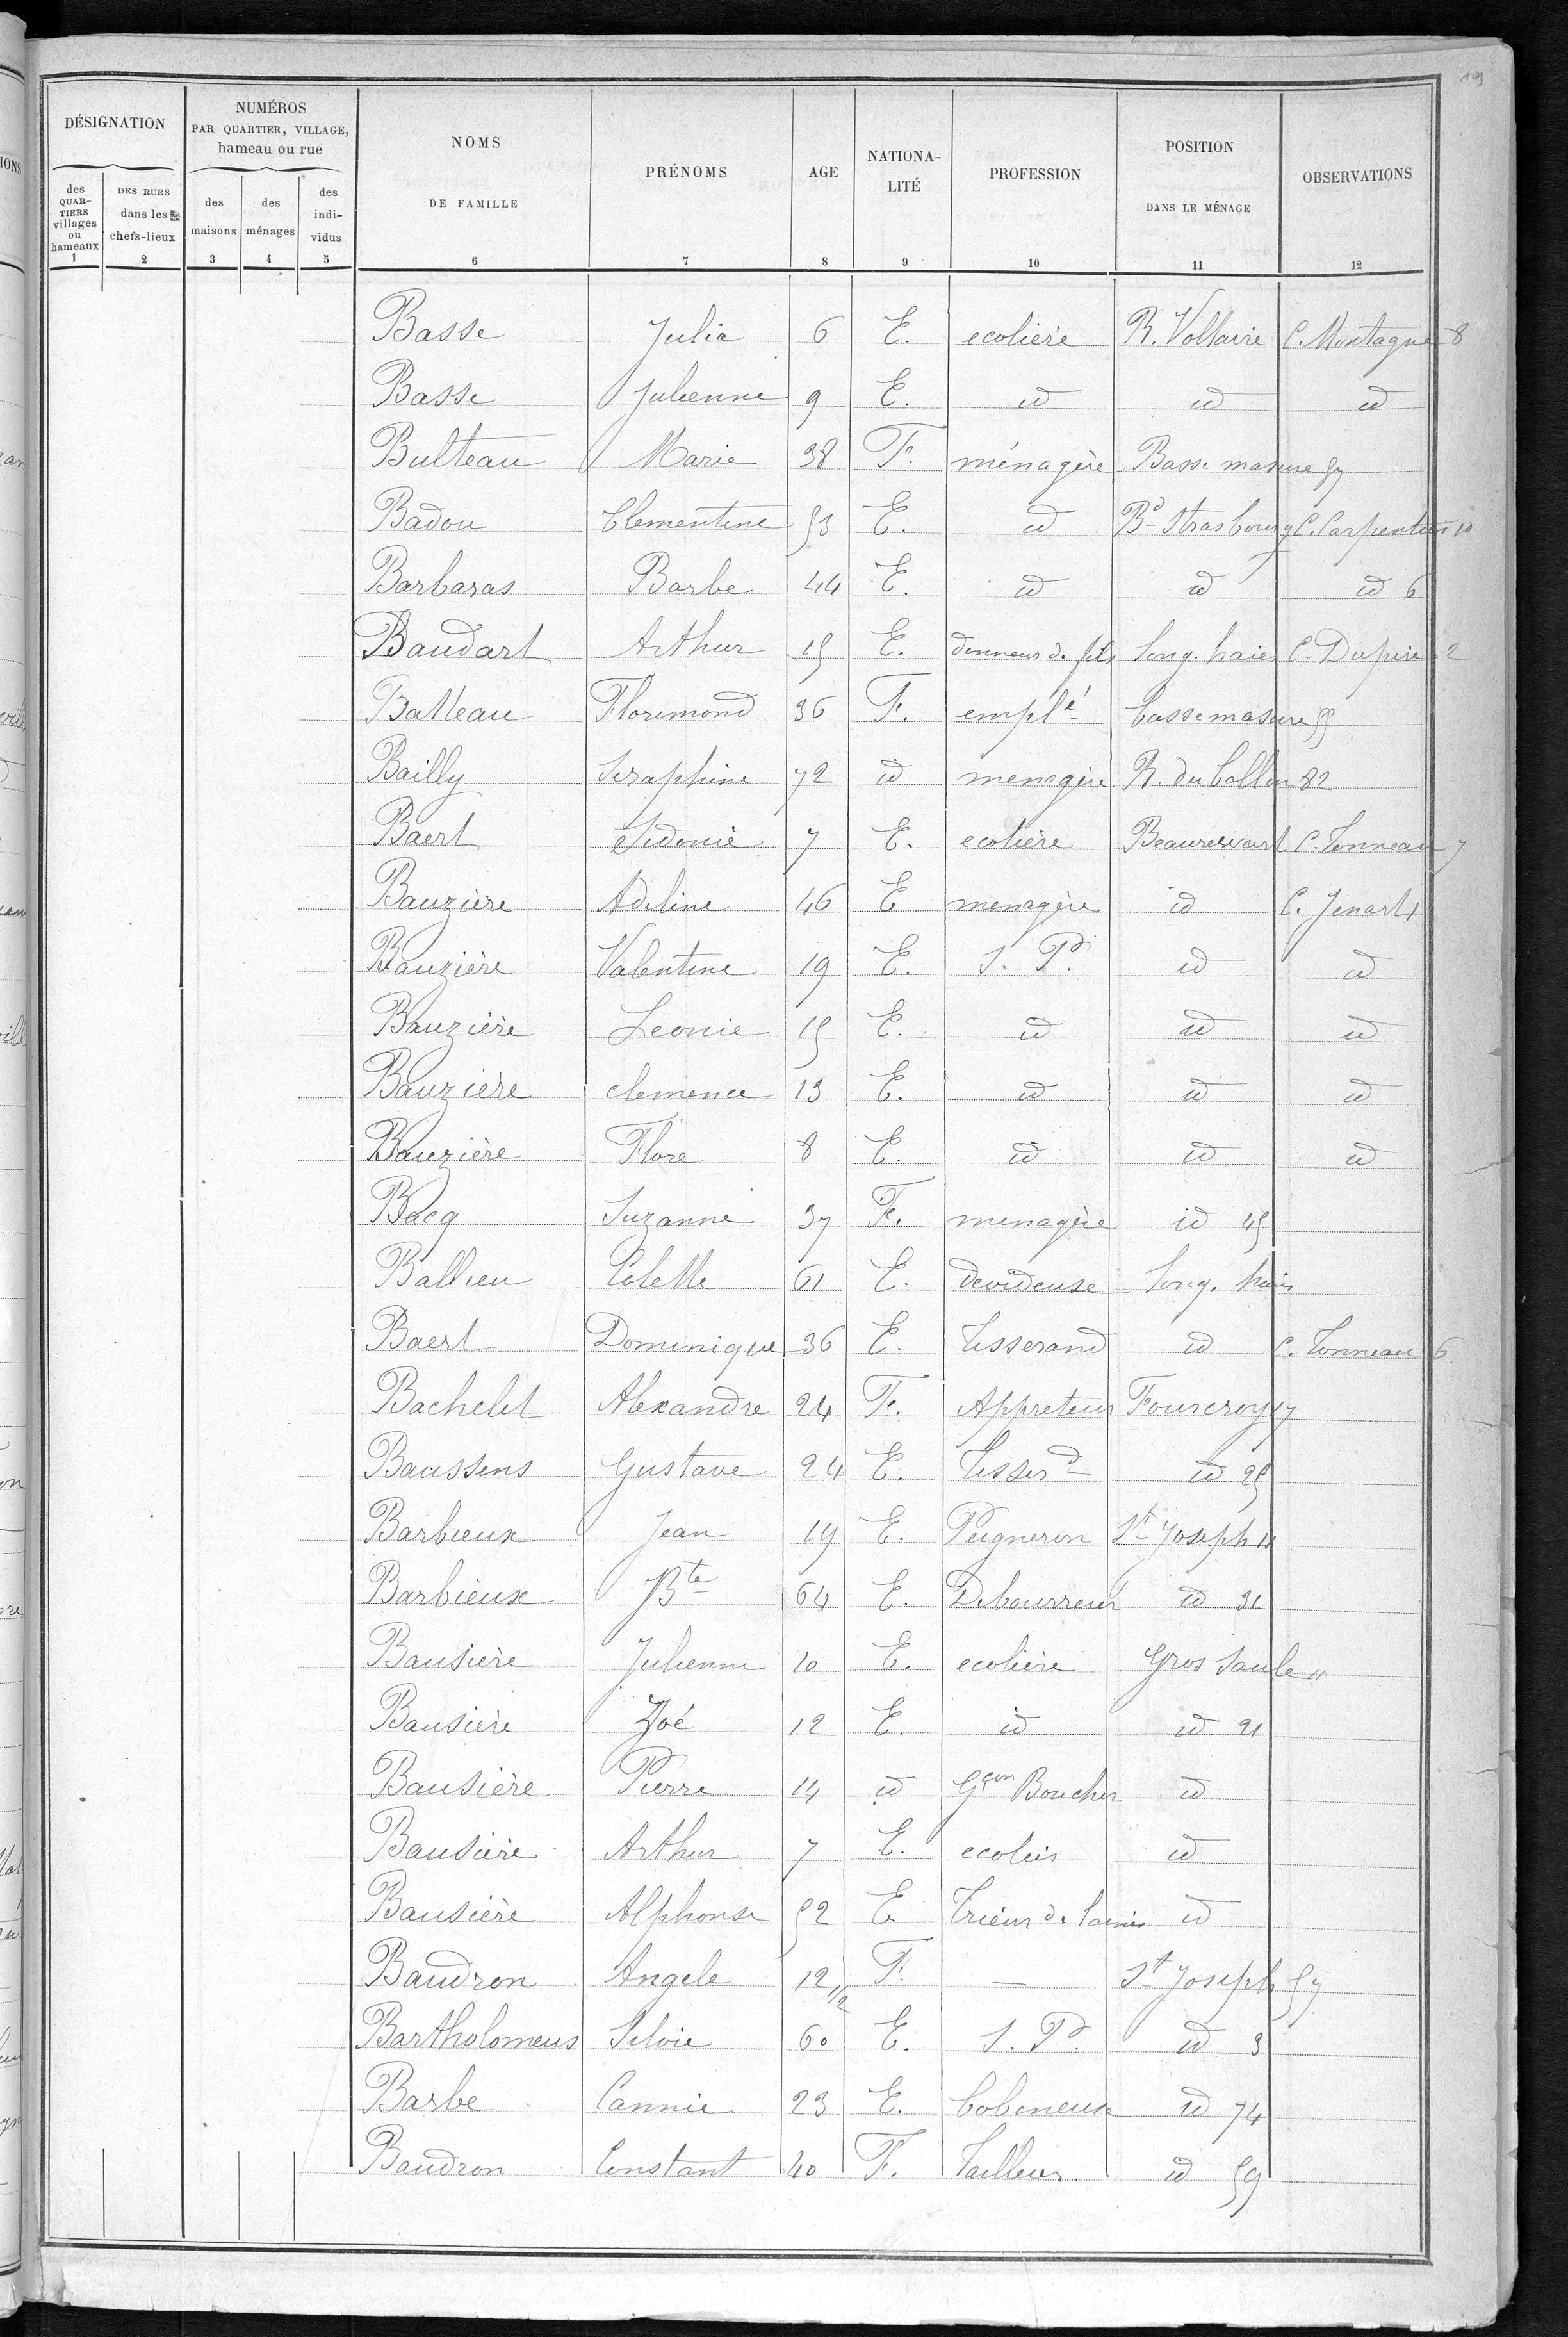 DÉSIGNATION
NUMÉROS
PAR QUARTIER, VILLAGE,
hameau ou rue
NOMS
DE FAMILLE
PRÉNOMS
AGE
NATIONA-
LITÉ
PROFESSION
POSITION
DANS LE MÉNAGE
OBSERVATIONS
des
QUAR-
TIERS
villages
ou
hameaux
DES RUES
dans les
chefs-lieux
des
maisons
des
ménages
des
indi-
vidus
1 2 3 4 5 6 7 8 9 10 11 12
Basse Julia 6 E. ecolière R. Voltaire C. Montagne 8
Basse Julienne 9 E. id id id
Bulteau Marie 38 F. ménagère Basse masure 57
Badou Clementine 53 E. id Bd Strasbourg C. Carpentier 10
Barbaras Barbe 44 E. id id id 6
Baudart Arthur 15 E. donneur de fils Long. haies C. Dupire 2
Batteau Florimond 36 F. emplé basse masure 55
Bailly Seraphine 72 id menagère R. du Collon 82
Baert Sidonie 7 E. ecolière Beaurewart C. Tonneau 7
Bauzière Adeline 46 E menagère id C. Jenart 1
Bauzière Valentine 19 E. S. P. id id
Bauzière Leonie 15 E. id id id
Bauzière clemence 13 E. id id id
Bauzière Flore 8 E. id id id
Bacq Suzanne 37 F. menagère id 45
Ballieu Colette 61 E. devideuse Long. haies
Baert Dominique 36 E. Tisserand id C. Tonneau 6
Bachelet Alexandre 24 F. Appreteur Fourcroy 17
Baussens Gustave 24 E. Tisserd id 25
Barbieux Jean 19 E. Peigneron St Joseph 11
Barbieux JBte 64 E. Debourreur id 31
Bausière Julienne 10 E. ecolière Gros Saule "
Bausière Zoé 12 E. id id 21
Bausière Pierre 14 id Gçon Boucher id
Bausière Arthur 7 E. ecolier id
Bausière Alphonse 52 E. Trieur de laines id
Baudron Angele 12 1/2 F. — St Joseph 57
Bartholomeus Silvie 60 E. S. P. id 3
Barbe Cannie 23 E. bobineuse id 74
Baudron Constant 40 F. Tailleur. id 59